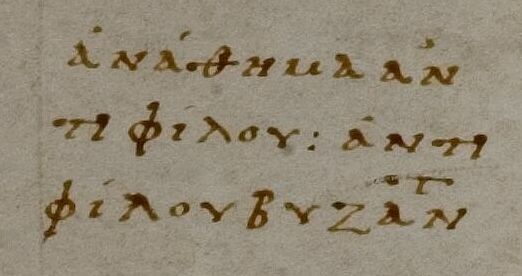 ἀνάθημα ἀν
τιφίλου: ἀντι
φίλου βυζαν̅τ